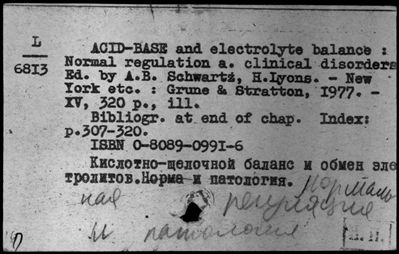 L
6813
ACID-BASE and electrolyte balance :
Normal regulation a. clinical disorders
Ed. by A.B. Schwartz, H.Lyons. - New
York etc. : Grune & Stratton, 1977. -
XV, 320 p., ill.
Bibliogr. at end of chap. Index:
p.307-320.
ISBN 0-8089-0991-6
Кислотно-щелочной баланс и обмен эле
тролитов.Норма и патология. Нормаль
ная регуляция
и патология